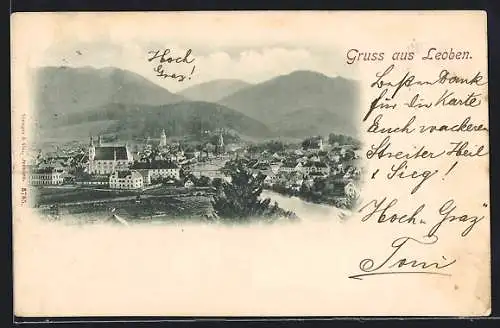 Hoch
Graz!
Gruss aus Leoben.
Besten Dank
für die Karte
Euch wackeren
Streiter Heil
& Sieg!
Hoch „Graz"
Toni
Stengel & Co., Dresden 8785.